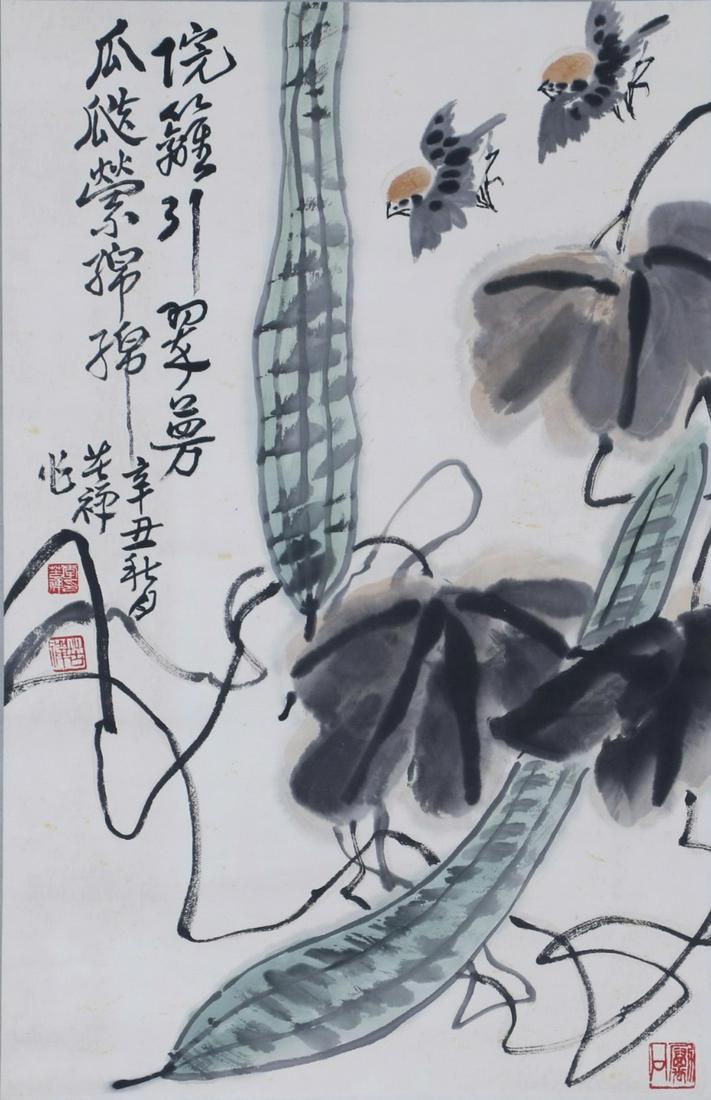 院籬引翠蔓
瓜瓞縈綿綿
辛丑秋月
苦禅
作